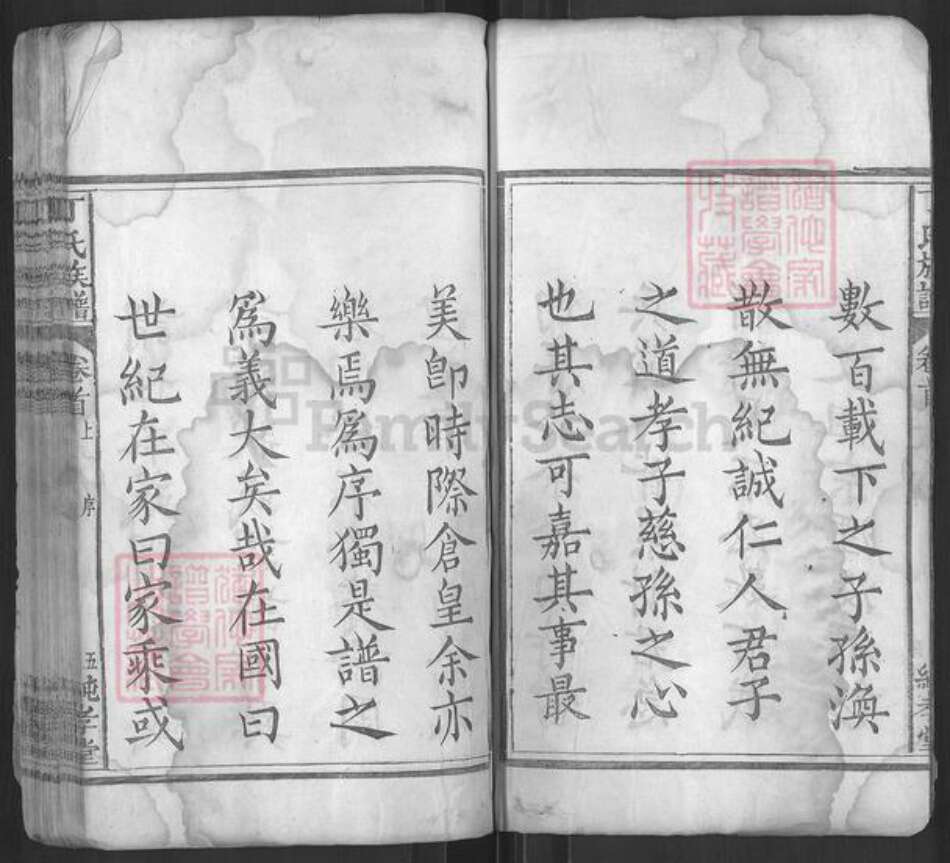 數百載下之子孫渙
散無紀誠仁人君子
之道孝子慈孫之心
也其志可嘉其事最
美卽時際倉皇余亦
樂焉爲序獨是譜之
爲義大矣哉在國曰
世紀在家曰家乘或
丁氏族譜 卷首上 序 五 純孝堂
FamilySearch